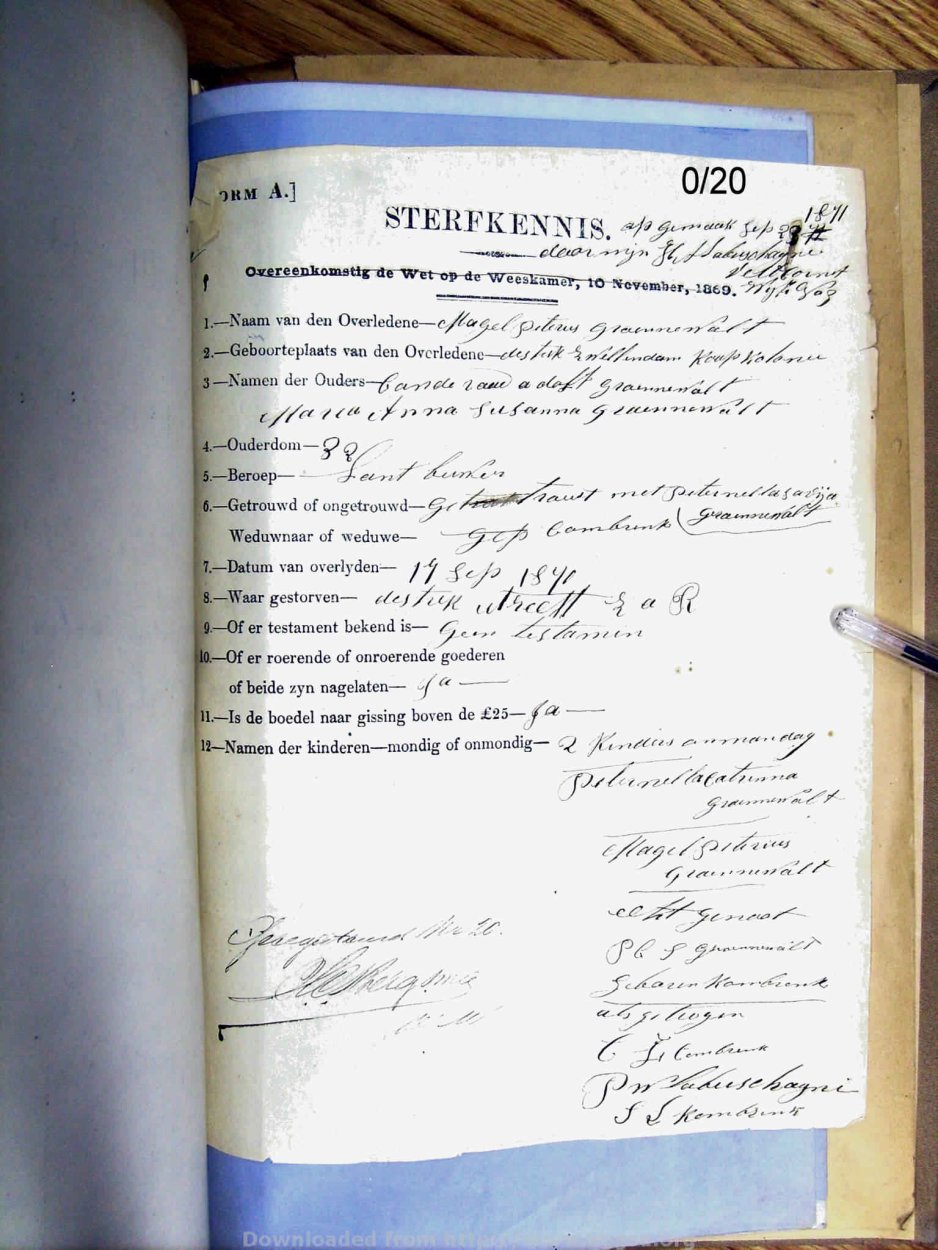 0/20
ORM A.]
STERFKENNIS.
op gemaak Sep 1871
door mijn Labuschagne
Veltkornet
Overeenkomstig de Wet op de Weeskamer, 10 November, 1869.
1.—Naam van den Overledene— Magel Piterus Groennewalt
2.—Geboorteplaats van den Overledene— destrik Zwellendam Kaap Kolonie
3—Namen der Ouders— adolf Groennewalt
Maria Anna Susanna Groennewalt
4.—Ouderdom—
5.—Beroep— Lant
6.—Getrouwd of ongetrouwd— met Piternella
Groennewalt
Weduwnaar of weduwe— Combrink
7.—Datum van overlyden— 17 Sep 1871
8.—Waar gestorven— destrik utreeft Z a R
9.—Of er testament bekend is— Geen testamen
10.—Of er roerende of onroerende goederen
of beide zyn nagelaten— Ja —
11.—Is de boedel naar gissing boven de £25— Ja —
12—Namen der kinderen—mondig of onmondig— 2 Kinders
Piternella Catrinna
Groennewalt
Magel Piterius
Groennewalt
echt genoot
Groennewalt
Geboren Kombrink
als getiogen
C Combrink
P W Labuschagni
Kombrink
Geregistreerd No 20.
Downloaded from